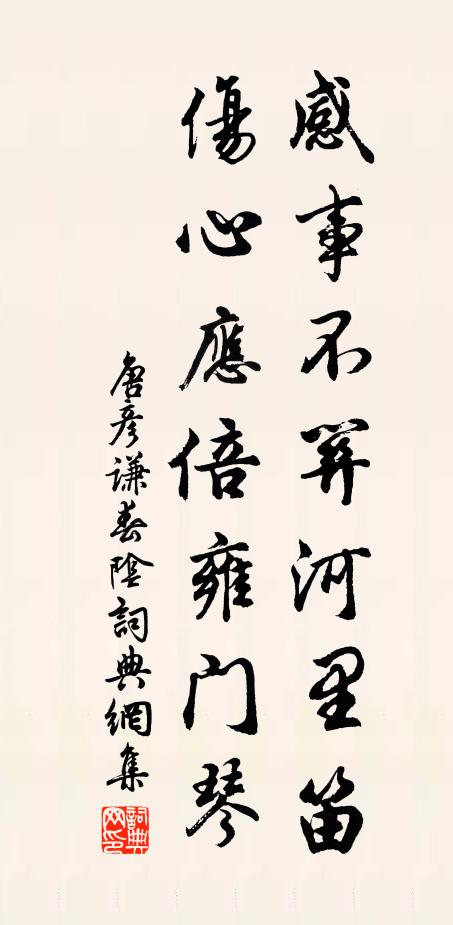 感事不關河里笛
傷心應倍雍門琴
唐彥謙春陰詞典網集
詞典网印